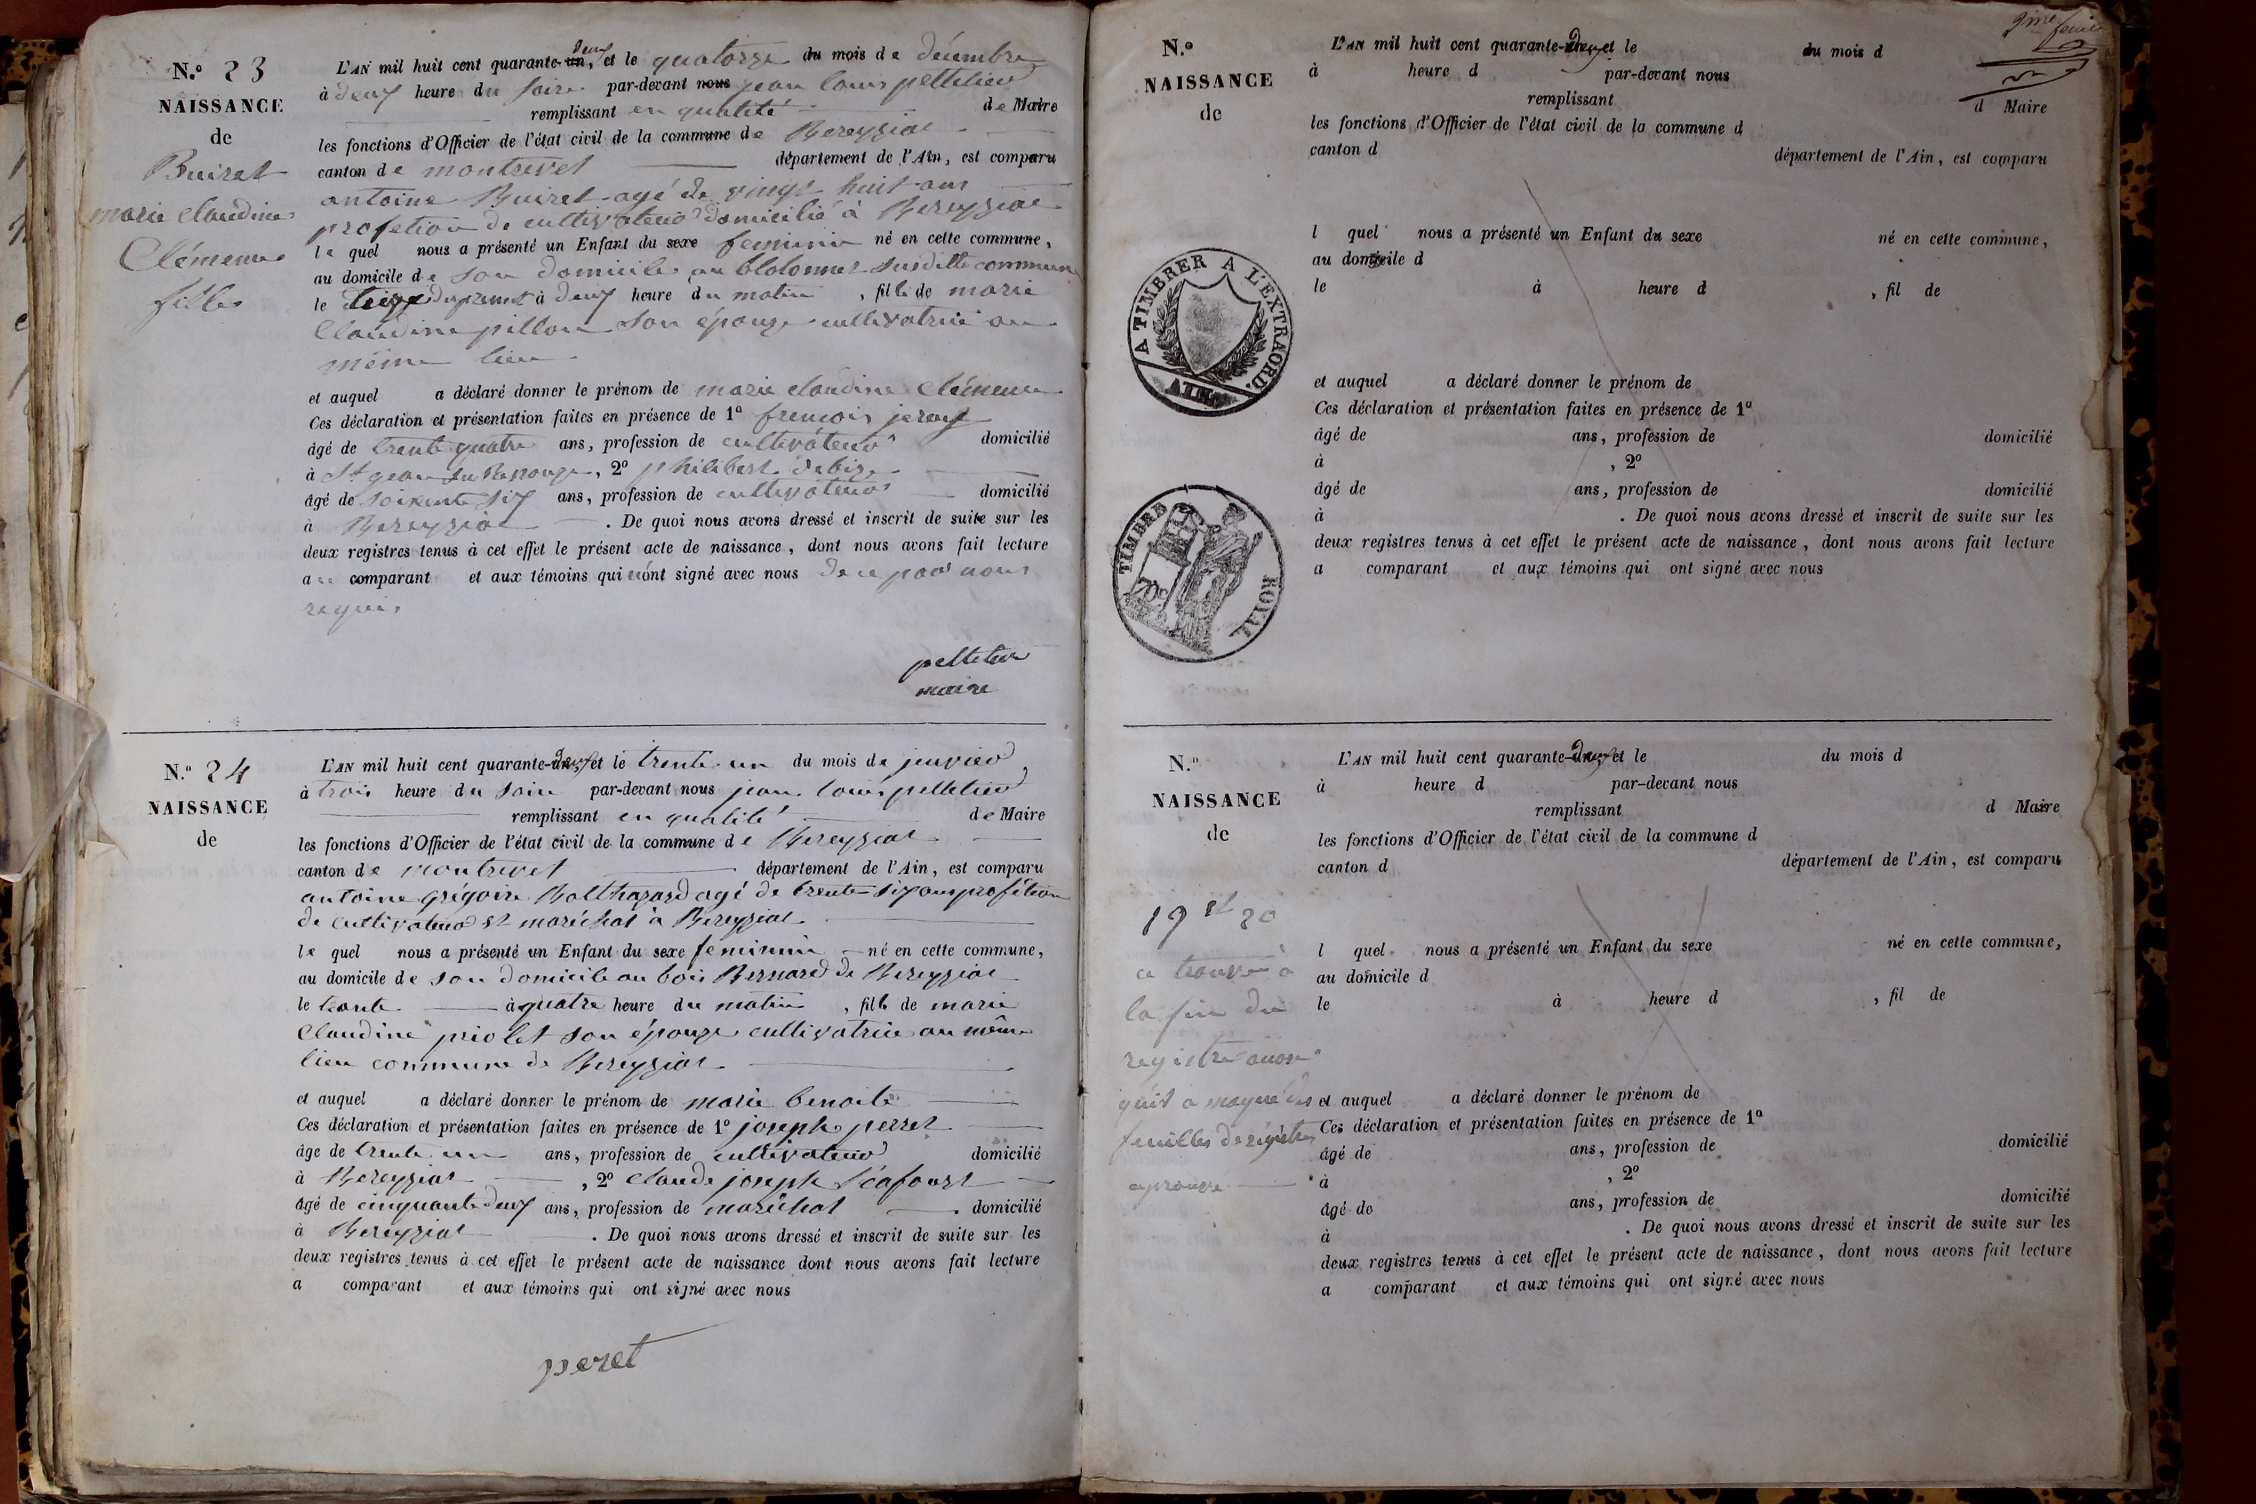 N.° 23
NAISSANCE
de
Buiret
marie claudine
Clémence
filles
L'AN mil huit cent quarante-un, deux et le quatorze du mois de décembre
à deux heure du soire par-devant nous jean louis pelletier
remplissant en qualité de Maire
les fonctions d'Officier de l'état civil de la commune de Bereyziat
canton de montrevel département de l'Ain, est comparu
antoine Buiret agé de vingt huit ans
profetion de cultivateur domicilié à Bereyziat
le quel nous a présenté un Enfant du sexe feminin né en cette commune,
au domicile de son domicile au susditte commune
le treize du present à deux heure du matin, fille de marie
Claudine pillon son épouze cultivatrice au
même lieu
et auquel a déclaré donner le prénom de marie claudine Clémence
Ces déclaration et présentation faites en présence de 1° francois
âgé de trente quatre ans, profession de cultivateur domicilié
à St jean sur Resouze, 2° philibert debize
âgé de soixente six ans, profession de cultivateur domicilié
à Bereyziat. De quoi nous avons dressé et inscrit de suite sur les
deux registres tenus à cet effet le présent acte de naissance, dont nous avons fait lecture
au comparant et aux témoins qui n'ont signé avec nous de ce par nous
requis
pelletier
maire
N.° 24
NAISSANCE
de
L'AN mil huit cent quarante-un, deux et le trente un du mois de janvier
à trois heure du soire par-devant nous jean louis pelletier
remplissant en qualité de Maire
les fonctions d'Officier de l'état civil de la commune de Bereyziat
canton de montrevel département de l'Ain, est comparu
antoine grégoire Balthazard agé de trente six ans profétion
de cultivateur et maréchal à Bereyziat
le quel nous a présenté un Enfant du sexe feminin né en cette commune,
au domicile de son domicile au bois Bernard de Bereyziat
le trente à quatre heure du matin, fille de marie
Claudine priolet son épouze cultivatrice au même
lieu commune de Bereyziat
et auquel a déclaré donner le prénom de marie benoite
Ces déclaration et présentation faites en présence de 1° joseph perret
âge de trente un ans, profession de cultivateur domicilié
à Bereyziat, 2° claude joseph
âgé de cinquante deux ans, profession de maréchal domicilié
à Bereyziat. De quoi nous avons dressé et inscrit de suite sur les
deux registres tenus à cet effet le présent acte de naissance dont nous avons fait lecture
a comparant et aux témoins qui ont signé avec nous
peret
9me feuille
N.°
NAISSANCE
de
L'AN mil huit cent quarante-un, deux et le du mois d
à heure d par-devant nous
remplissant d Maire
les fonctions d'Officier de l'état civil de la commune d
canton d département de l'Ain, est comparu
l quel nous a présenté un Enfant du sexe né en cette commune,
au domicile d
le à heure d , fil de
A TIMBRER A L'EXTRAORD.
AIN
et auquel a déclaré donner le prénom de
Ces déclaration et présentation faites en présence de 1°
âgé de ans, profession de domicilié
à , 2°
âgé de ans, profession de domicilié
à . De quoi nous avons dressé et inscrit de suite sur les
deux registres tenus à cet effet le présent acte de naissance, dont nous avons fait lecture
a comparant et aux témoins qui ont signé avec nous
TIMBRE ROYAL
N.°
NAISSANCE
de
L'AN mil huit cent quarante-un, deux et le du mois d
à heure d par-devant nous
remplissant d Maire
les fonctions d'Officier de l'état civil de la commune d
canton d département de l'Ain, est comparu
l quel nous a présenté un Enfant du sexe né en cette commune,
au domicile d
le à heure d , fil de
19 et 20
ce trouve à
la fin du
registre
qu'il a manqué des
feuilles de régistres
aprouve
et auquel a déclaré donner le prénom de
Ces déclaration et présentation faites en présence de 1°
âgé de ans, profession de domicilié
à , 2°
âgé de ans, profession de domicilié
à . De quoi nous avons dressé et inscrit de suite sur les
deux registres tenus à cet effet le présent acte de naissance, dont nous avons fait lecture
a comparant et aux témoins qui ont signé avec nous